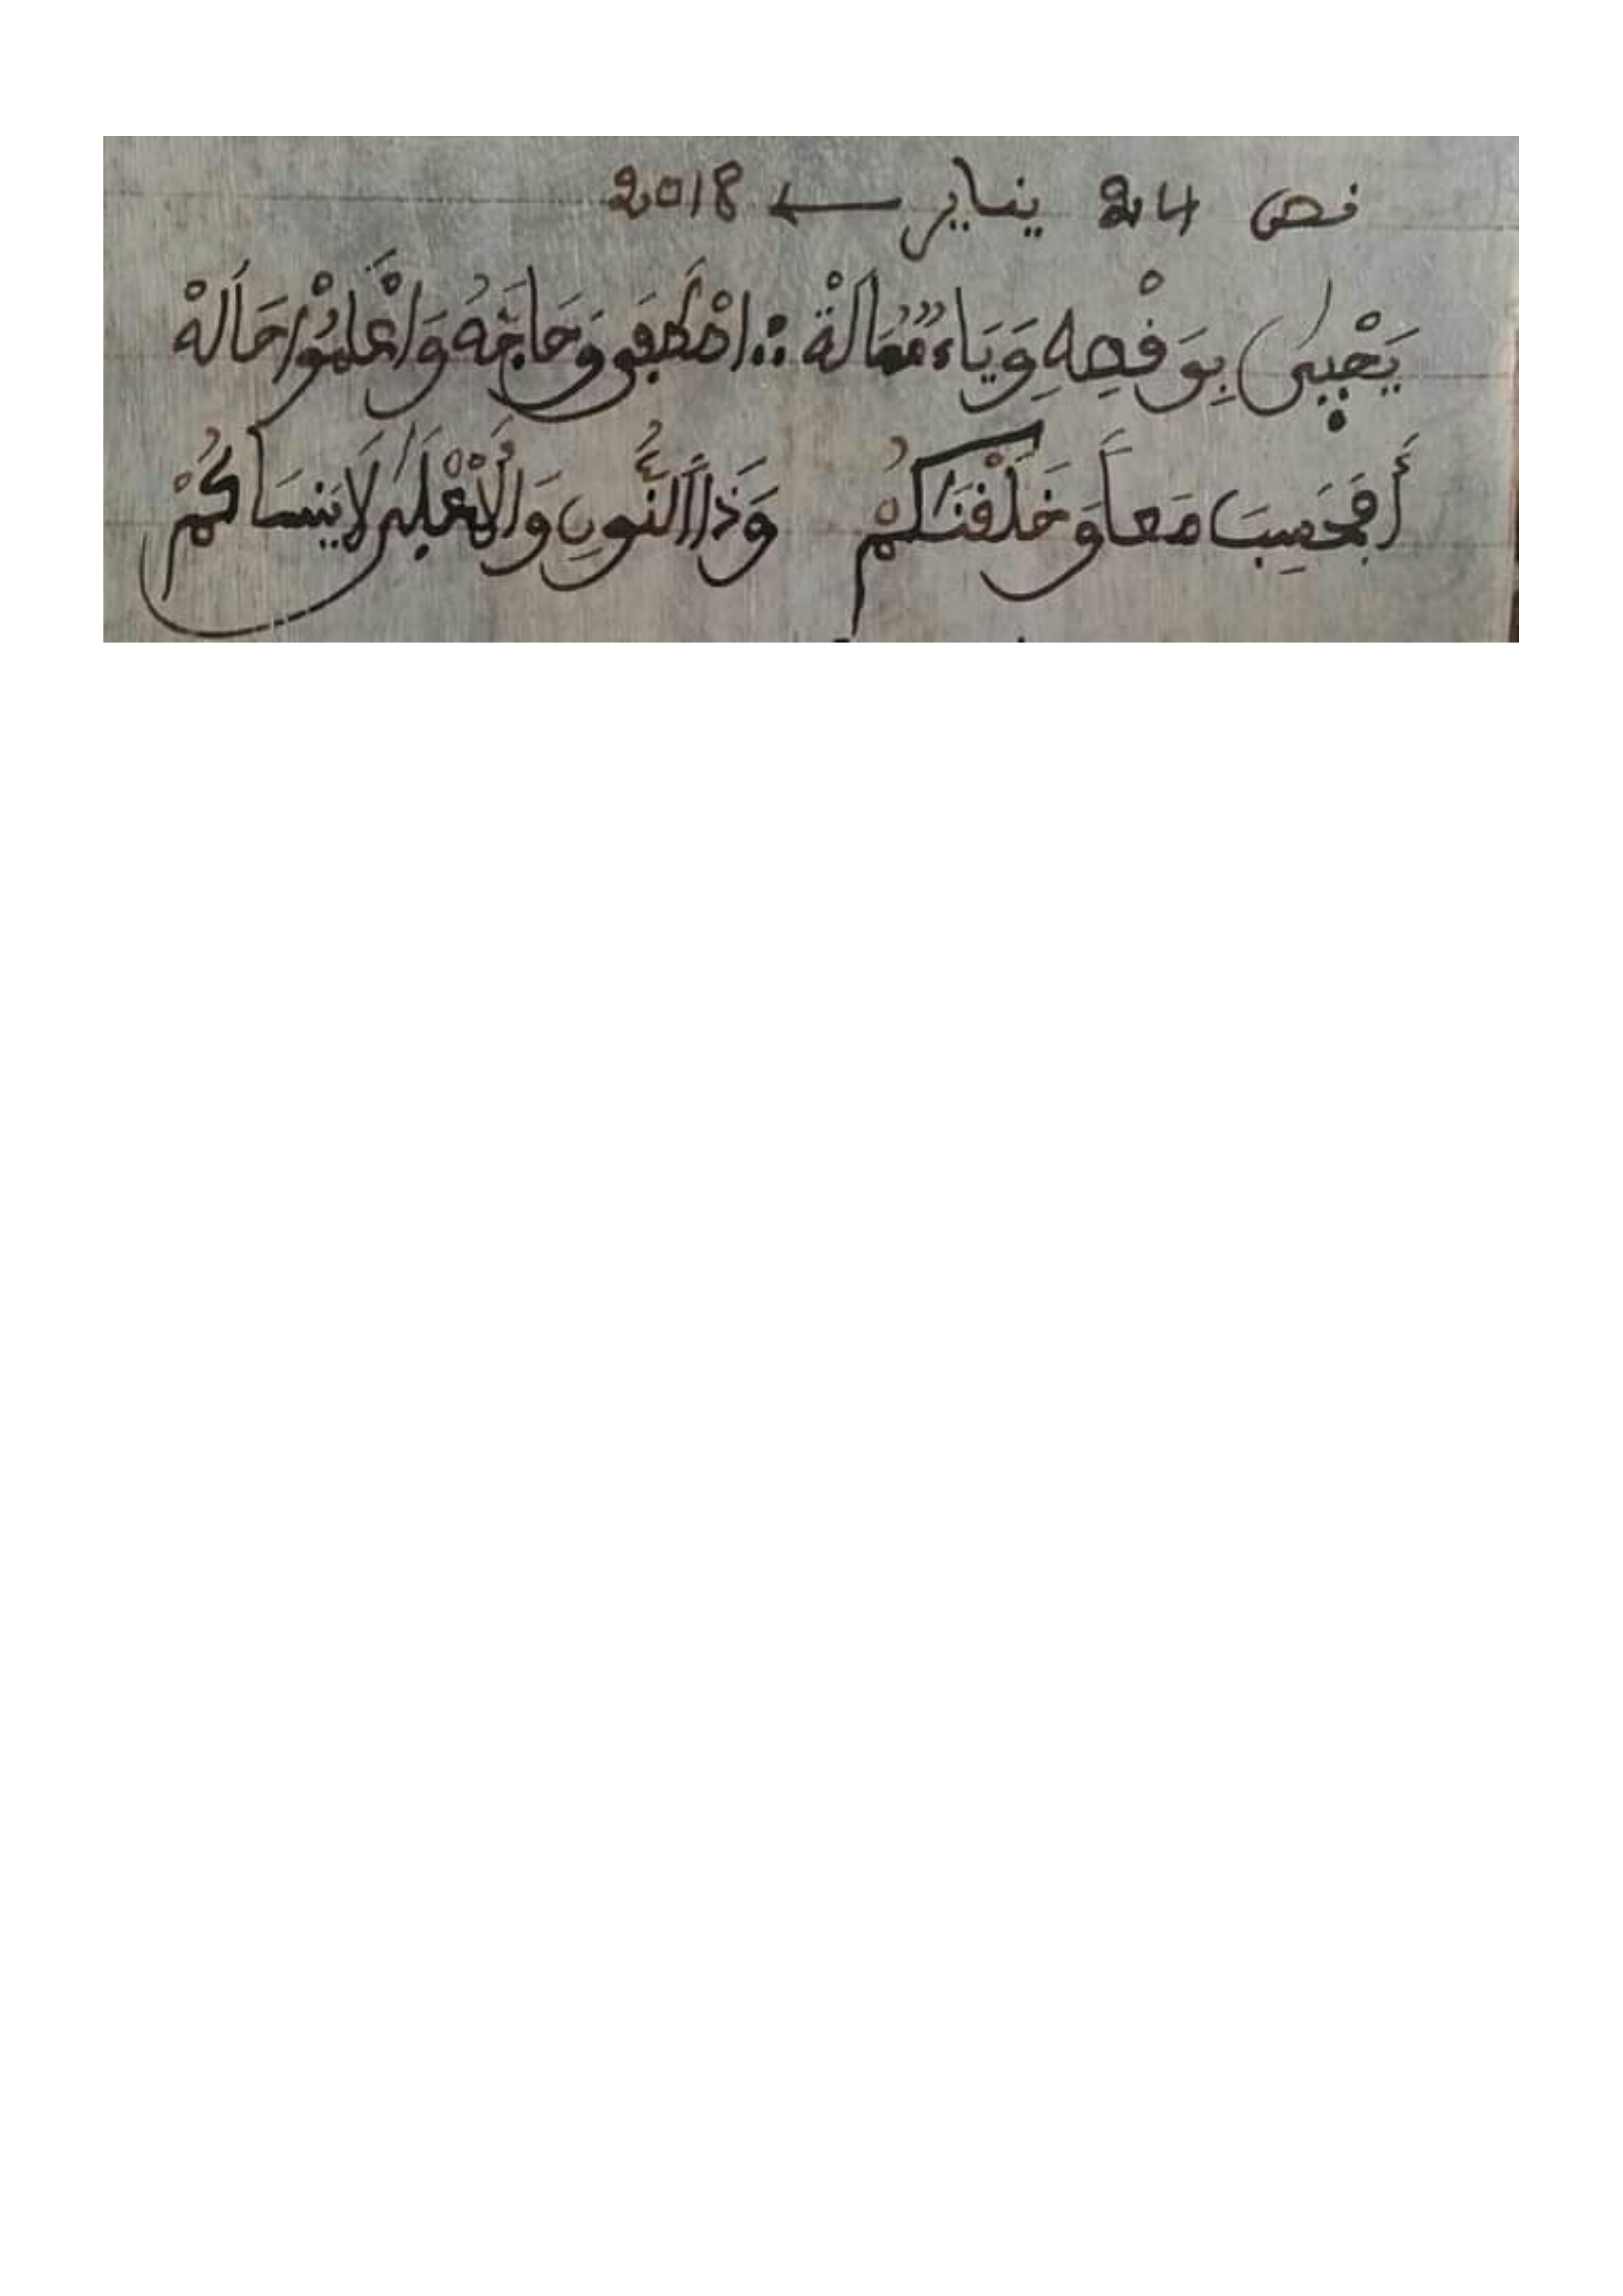 نص 24 يناير ← 2018
يَحْيىٰ بِوَفْصِهِ وَيَاءٌ مُمَالَةْ ∴ اصْطَفى وَحَاجَّهُ وَاعْلَمُوْا حَالَهْ
أَفَحَسِبَ مَعاً وَخَلَفْنَٰكُمْ وَذَا النُّونِ وَالْاعْلَىٰ لَا يَنسَاكُمْ